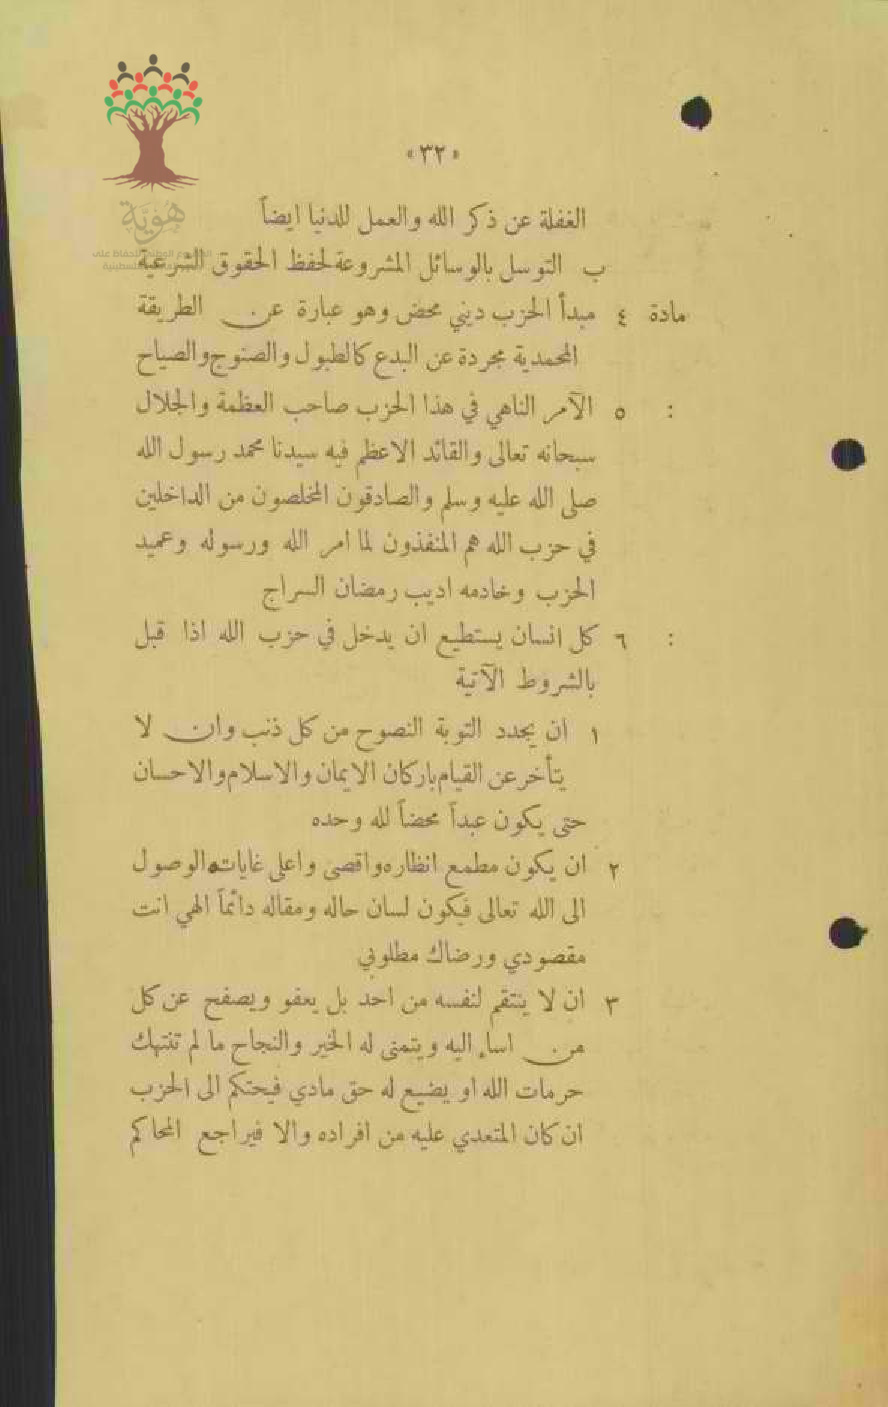 «٣٢»
هُوِيَّة
الغفلة عن ذكر الله والعمل للدنيا ايضاً
ب التوسل بالوسائل المشروعة لحفظ الحقوق الشرعية
مادة ٤ مبدأ الحزب ديني محض وهو عبارة عن الطريقة
المحمدية مجردة عن البدع كالطبول والصنوج والصياح
: ٥ الآمر الناهي في هذا الحزب صاحب العظمة والجلال
سبحانه تعالى والقائد الاعظم فيه سيدنا محمد رسول الله
صلى الله عليه وسلم والصادقون المخلصون من الداخلين
في حزب الله هم المنفذون لما امر الله ورسوله وعميد
الحزب وخادمه اديب رمضان السراج
: ٦ كل انسان يستطيع ان يدخل في حزب الله اذا قبل
بالشروط الآتية
١ ان يجدد التوبة النصوح من كل ذنب وان لا
يتأخر عن القيام باركان الايمان والاسلام والاحسان
حتى يكون عبداً محضاً لله وحده
٢ ان يكون مطمع انظاره واقصى واعلى غاياته الوصول
الى الله تعالى فيكون لسان حاله ومقاله دائماً الهي انت
مقصودي ورضاك مطلوبي
٣ ان لا ينتقم لنفسه من احد بل يعفو ويصفح عن كل
من اساء اليه ويتمنى له الخير والنجاح ما لم تنتهك
حرمات الله او يضيع له حق مادي فيحتكم الى الحزب
ان كان المتعدي عليه من افراده والا فيراجع المحاكم